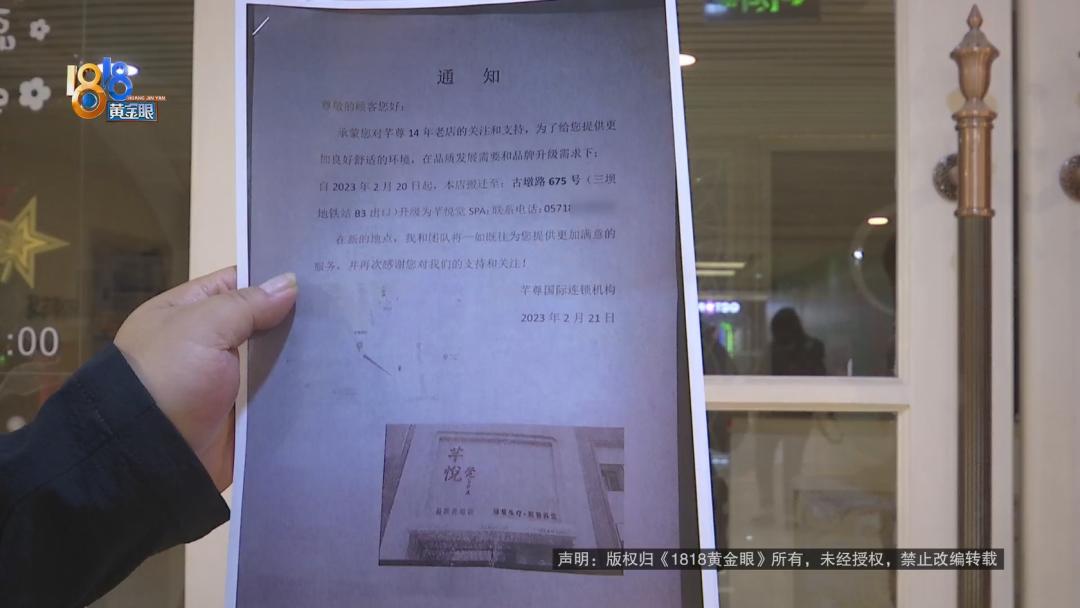 1818
HUANG JIN YAN
黄金眼
通 知
尊敬的顾客您好：
承蒙您对芊尊 14 年老店的关注和支持，为了给您提供更
加良好舒适的环境，在品质发展需要和品牌升级需求下：
自 2023 年 2 月 20 日起，本店搬迁至：古墩路 675 号（三坝
地铁站 B3 出口）升级为芊悦觉 SPA；联系电话：05718
在新的地点，我和团队将一如既往为您提供更加满意的
服务，并再次感谢您对我们的支持和关注！
芊尊国际连锁机构
2023 年 2 月 21 日
芊
悦
觉
SPA
:00
声明：版权归《1818黄金眼》所有，未经授权，禁止改编转载